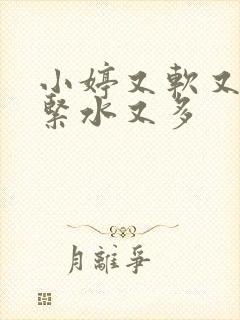 小婷又軟又
緊水又多
月離爭